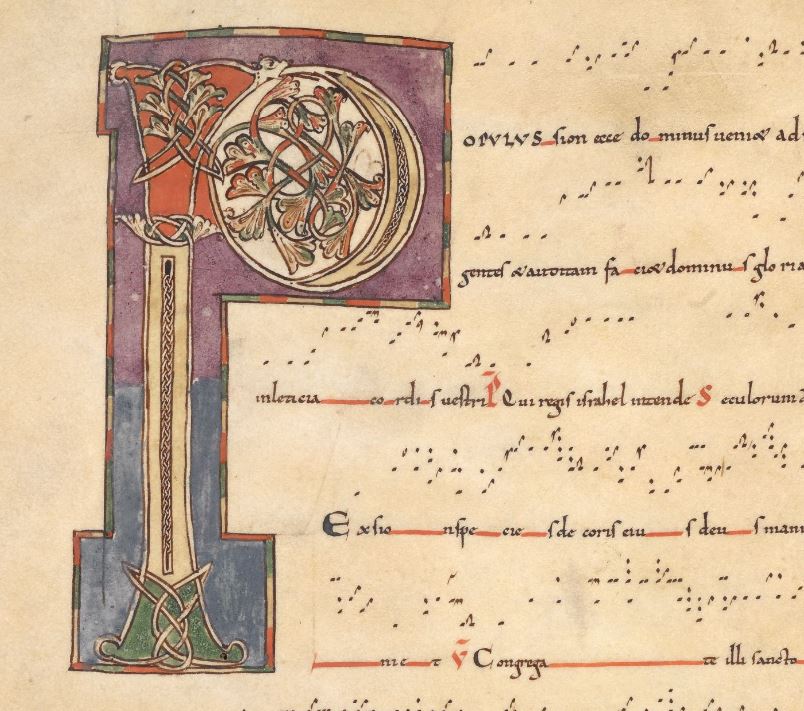 POPVLVS sion ecce do minus ueniet ad
gentes & auditam fa ciet dominus gloria
in leticia co rdi s uestri P Qui regis israhel intende S eculorum a
Ex sio n spe cie s de coris eiu s deu s mani
nie t V Congrega te illi sancto